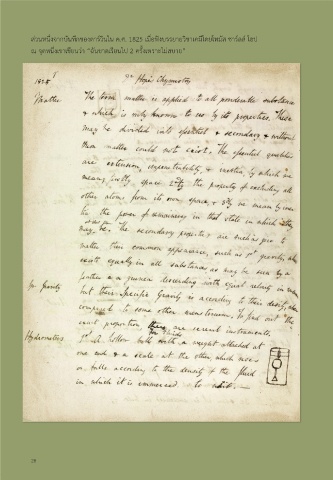 ส่วนหนึ่งจากบันทึกของดาร์วินใน ค.ศ. 1825 เมื่อฟังบรรยายวิชาเคมีโดยโทมัส ชาร์ลส์ โฮป
ณ จุดหนึ่งเขาเขียนว่า "ฉันขาดเรียนไป 2 ครั้งเพราะไม่สบาย"
1825 Dr Hope's Chymistry
Matter The term matter is applied to all ponderable substance
& which is only known to us by its properties. These
may be divided into essential & secondary & without
them matter could not exist. The essential qualities
are extension, impenetrability, & motion, by which we
means 1stly space 2dly the property of excluding all
other atoms from its own space, & 3dly we mean by
the power of in that state in which they
may be. The secondary property are such as give to
matter their common appearance, such as 1st gravity, which
exists equally in all substances as may be seen by a
feather & a guinea descending with equal velocity in
Sp. Gravity but their Specific Gravity is according to their density, when
compared to some other To find out the
exact proportion there are several instruments.
Hydrometers 1st A hollow bulb with a weight attached at
one end & a scale at the other, which rises
or falls according to the density of the fluid
in which it is immersed
28